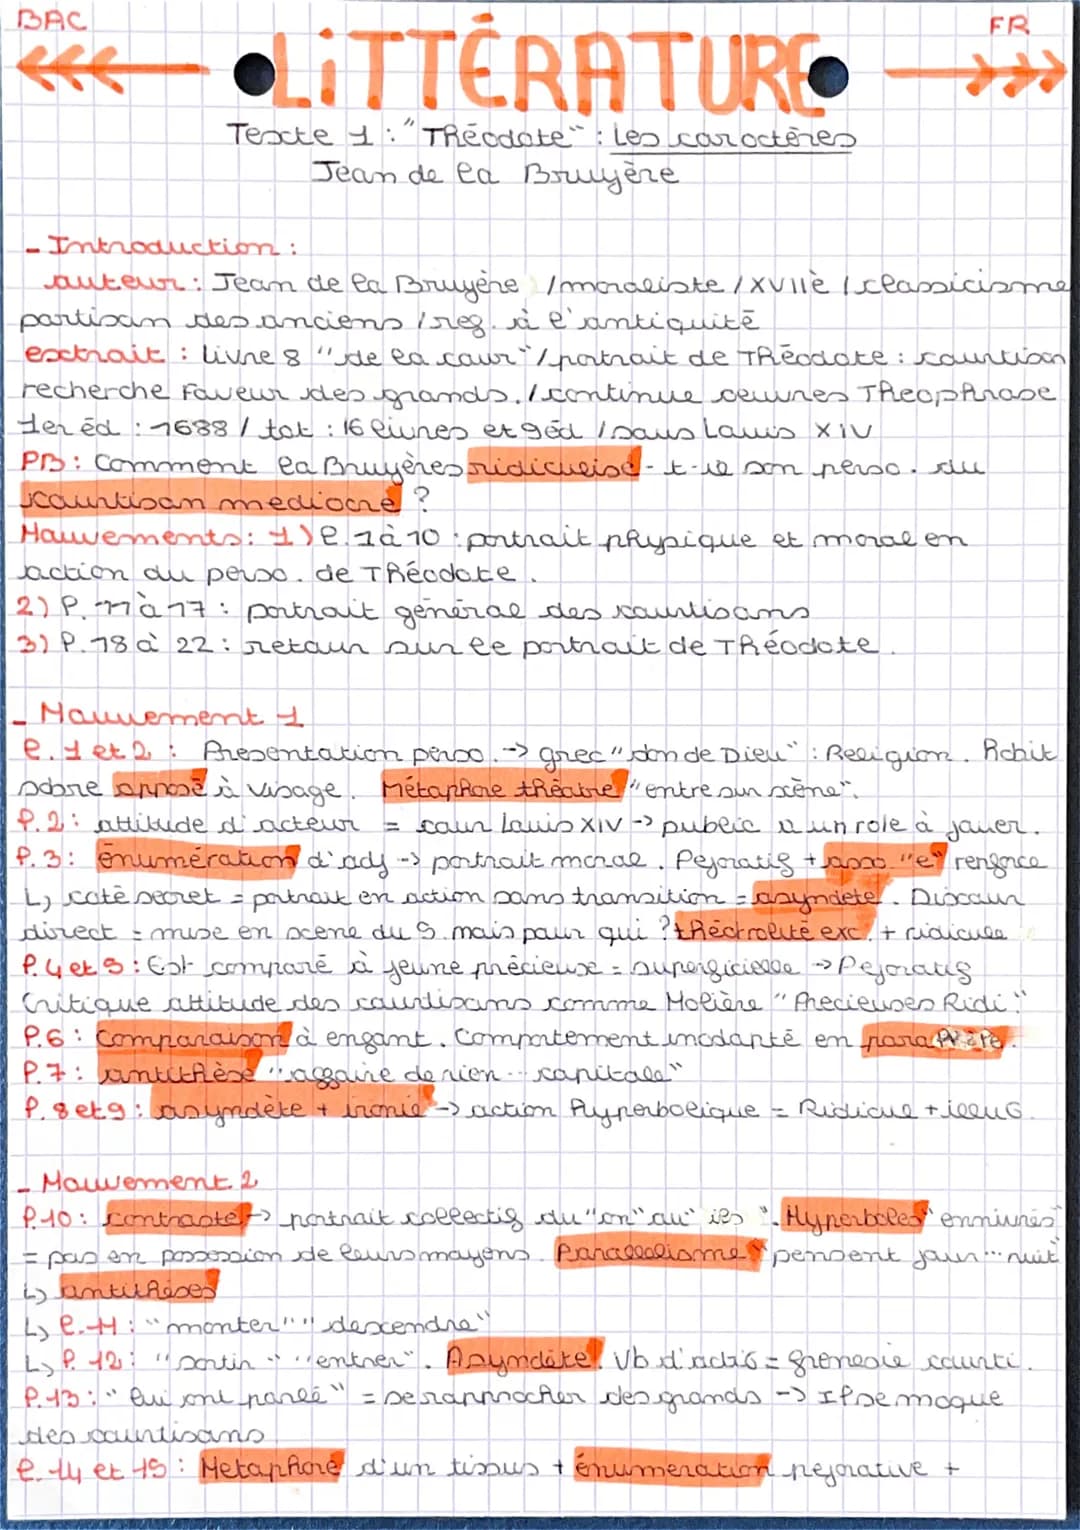 BAC
FR
LiTTÉRATURE
Texte 1 : "Théodote" : Les caractères
Jean de la Bruyère
- Introduction :
auteur : Jean de la Bruyère / moraliste / XVIIè / classicisme
partisan des anciens / reg. à l'antiquité
extrait : livre 8 "de la cour" / portrait de Théodote : courtisan
recherche faveur des grands. / continue oeuvres Theophrase
1er éd : 1688 / tot : 16 livres et 9éd / sous Louis XIV
PB : Comment la Bruyères ridiculise-t-il son perso. du
courtisan mediocre ?
Mouvements : 1) l.1à10 : portrait physique et moral en
action du perso. de Théodote.
2) l. 11à17 : portrait général des courtisans
3) l. 18 à 22 : retour sur le portrait de Théodote.
- Mouvement 1
l. 1 et 2 : Presentation perso. -> grec "don de Dieu" : Religion. Habit
sobre opposé à visage. Métaphore théatre "entre sur scène".
l. 2 : attitude d'acteur = cour Louis XIV -> public a un role à jouer.
l. 3 : énumération d'adj -> portrait moral. Pejoratif + asso. "e" renforce
↳ coté secret = portrait en action sans transition = asyndete. Discour
direct = mise en scene du S. mais pour qui ? théâtralité exc. + ridicule
l. 4 et 5 : Est comparé à jeune précieuse = superficielle -> Pejoratif
Critique attitude des courtisans comme Molière "Precieuses Ridi."
l. 6 : Comparaison à enfant. Comportement inadapté en
l. 7 : antithèse "affaire de rien ... capitale"
l. 8 et 9 : asyndète + ironie -> action hyperbolique = Ridicul + illu6.
- Mouvement 2
l. 10 : contraste -> portrait collectif du "on" au "ils". Hyperboles "enniurés"
= pas en possession de leurs moyens. Parallelisme "pensent jour ... nuit"
↳ antithèses
↳ l. 11 : "monter" "descendre"
↳ l. 12 : "sortir" "entrer". Asyndète. Vb d'acti6 = frenesie courti.
l. 13 : "lui ont parlé" = se rapprocher des grands -> Il se moque
des courtisans
l. 14 et 15 : Metaphore d'un tissus + énumeration pejorative +